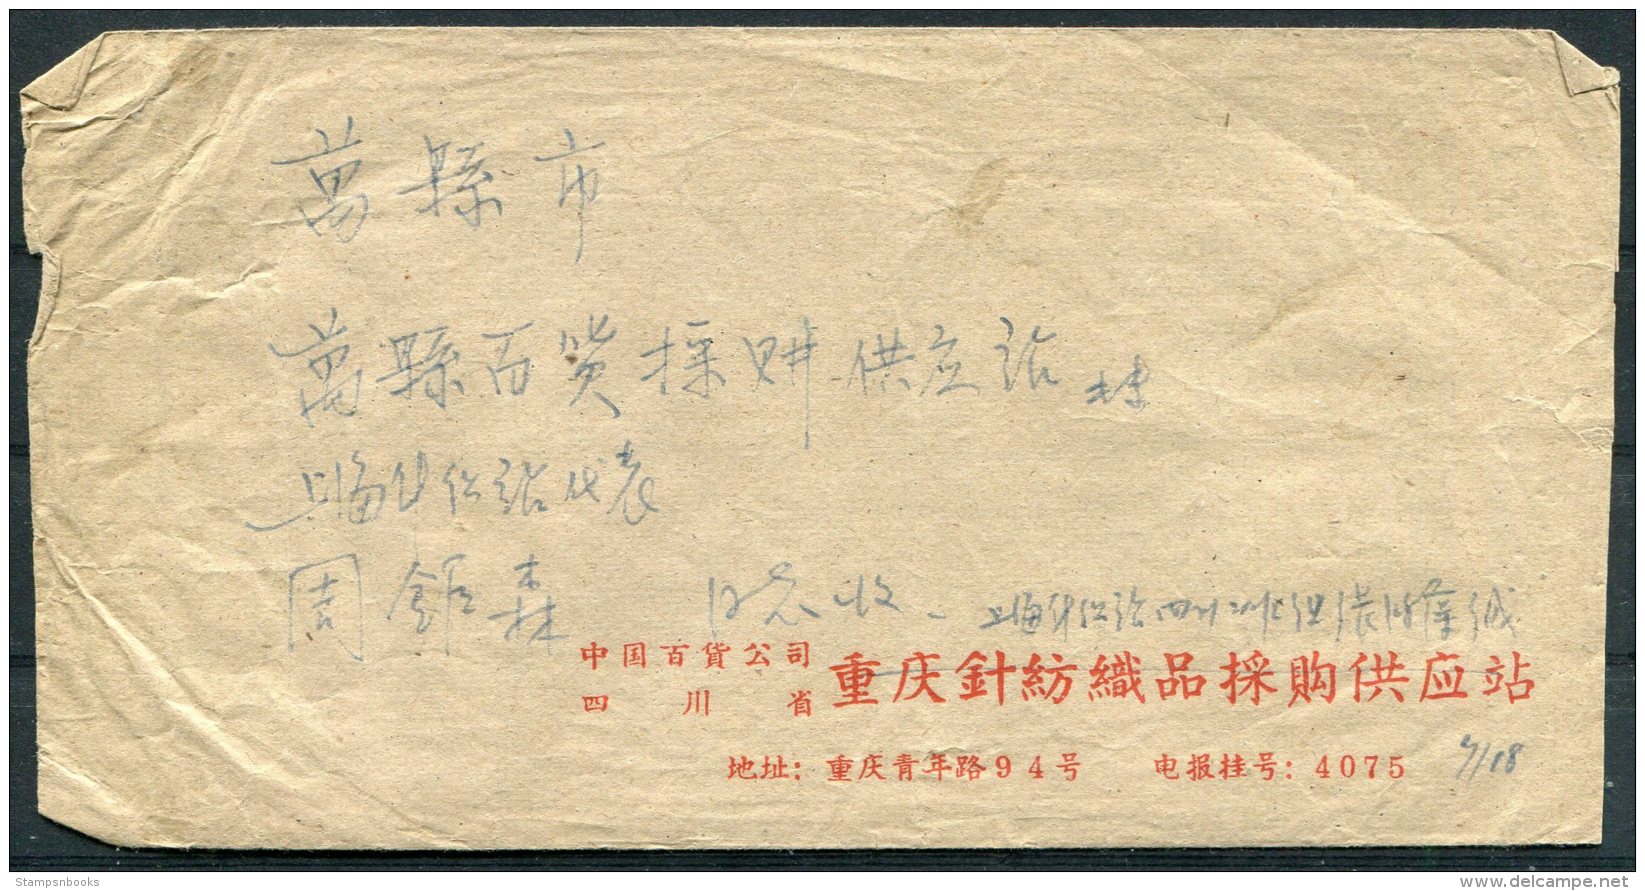 萬縣市
萬縣百貨採购供应站 转
上海针织站代表
周鉅森 同志收
上海针织站四川 组
中国百貨公司
四川省
重庆針紡織品採购供应站
地址：重庆青年路94号 电报挂号：4075
7/18
Stampsnbooks
delcampe.net